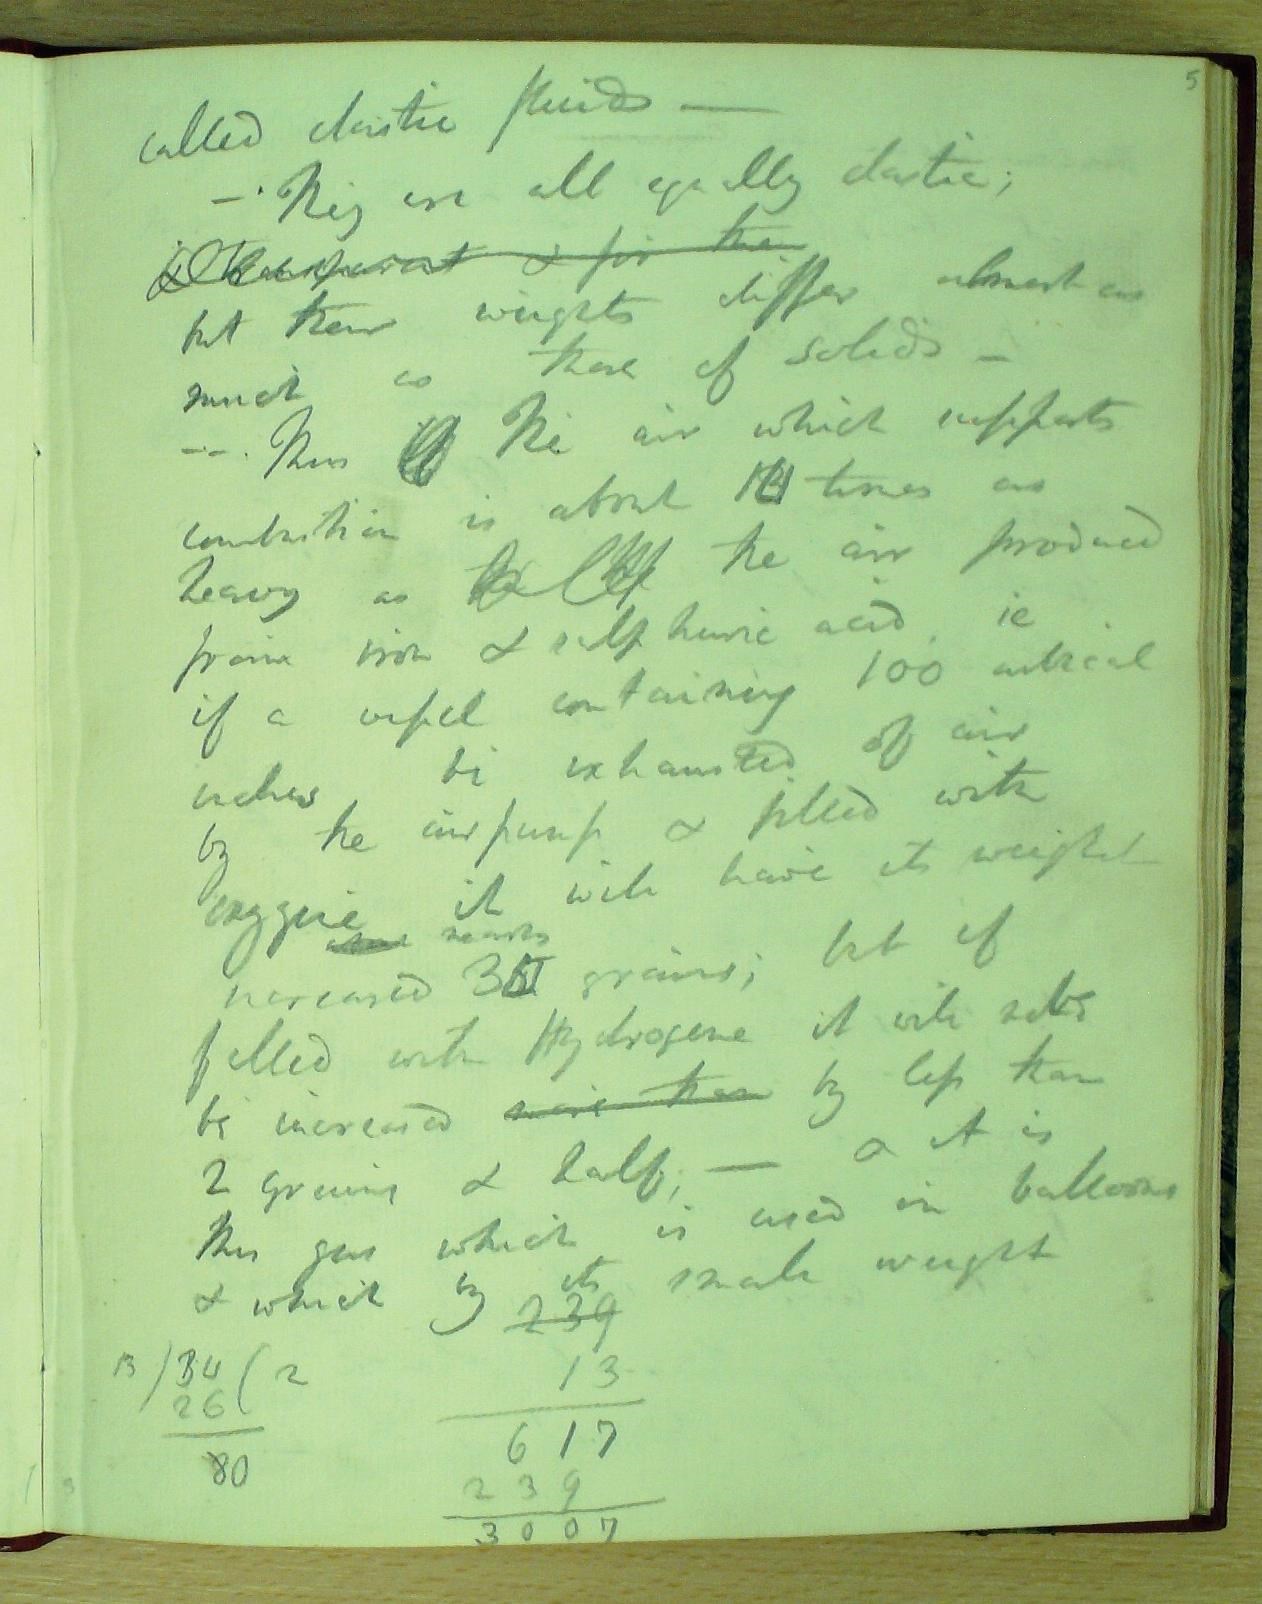 5
called elastic fluids —
—. They are all equally elastic;
& transparent & for the
but their weights differ almost as
much as those of solids —
--. Thus The air which supports
combustion is about 14 times as
heavy as the air produced
from iron & sulphuric acid, ie
if a vessel containing 100 cubical
inches be exhausted of air
by the airpump & filled with
oxygene it will have its weight
nearly
increased 3 grains; but if
filled with Hydrogene it will only
be increased more than by less than
2 grains & half; — & it is
this gas which is used in balloons
& which by its small weight
239
13 / 34 ( 2
13
26
617
80
239
3007